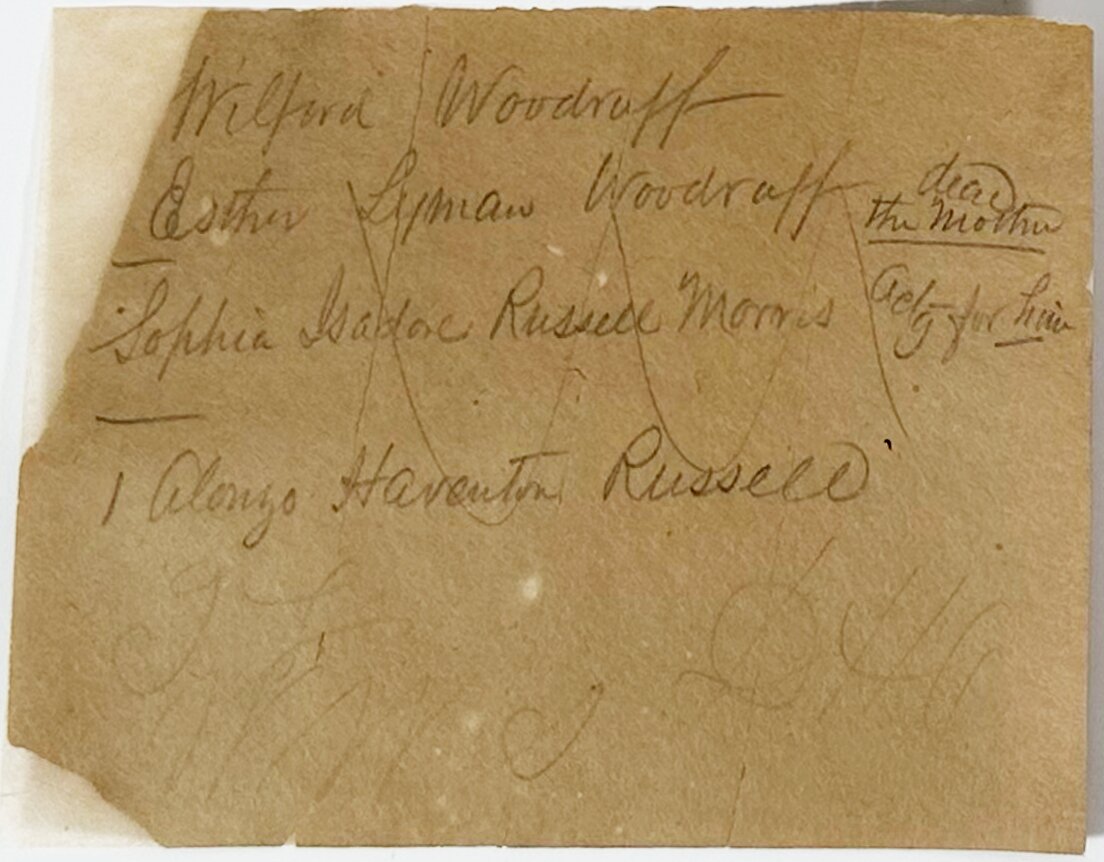 Wilford Woodruff
Esther Lyman Woodruff dead
the Mother
Sophia Isadore Russell Morris actg for him
1 Alonzo Haventon Russell